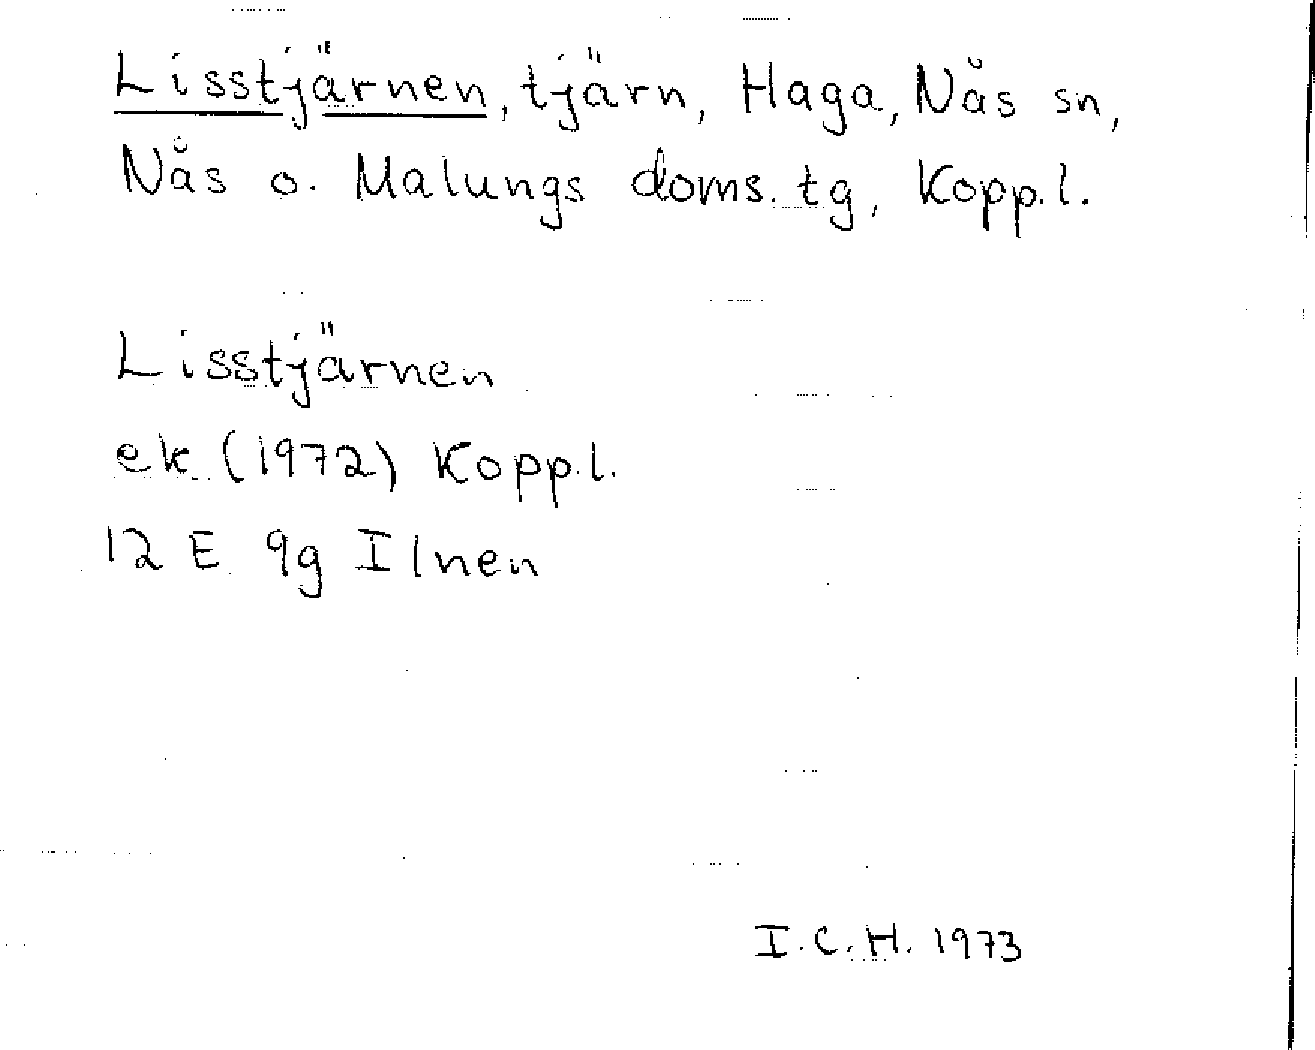 Lisstjärnen, tjärn, Haga, Nås sn,
Nås o. Malungs doms. tg, Kopp.l.
Lisstjärnen
ek (1972) Kopp.l.
12 E 9g Ilnen
I.C.H. 1973